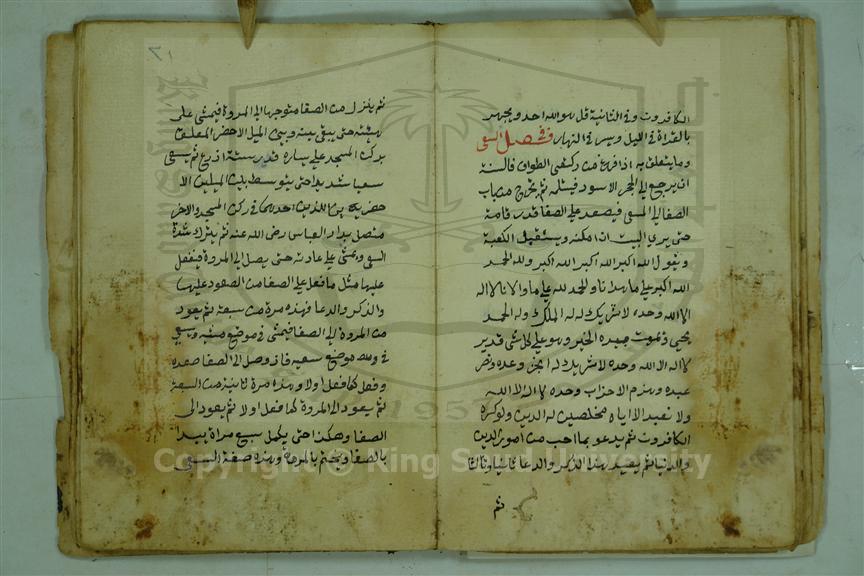 الكافرون وفي الثانية قل هو الله احد ويجهر
بالقراة في الليل ويسر في النهار فصل في السعي
وما يتعلق به اذا فرغ من ركعتي الطواف فالسنة
ان يرجع الى الحجر الاسود فيستلمه ثم يخرج من باب
الصفا الى المسعى فيصعد على الصفا قدر قامة
حتى يرى البيت ان امكنه ويستقبل الكعبة
ويقول الله اكبر الله اكبر الله اكبر ولله الحمد
الله اكبر على ما هدانا والحمد لله على ما اولانا لا اله
الا الله وحده لا شريك له له الملك وله الحمد
يحيي ويميت بيده الخير وهو على كل شي قدير
لا اله الا الله وحده لا شريك له انجز وعده ونصر
عبده وهزم الاحزاب وحده لا اله الا الله
ولا نعبد الا اياه مخلصين له الدين ولو كره
الكافرون ثم يدعو بما احب من امور الدين
والدنيا ثم يعيد هذا الذكر والدعا ثانيا وثالثا
ثم
٢١
ثم ينزل من الصفا متوجها الى المروة فيمشي على
هينته حتى يبقى بينه وبين الميل الاخضر المعلق
بركن المسجد على يساره قدر ستة اذرع ثم يسعى
سعيا شديدا حتى يتوسط بين الميلين الا
خضرين اللذين احدهما في ركن المسجد والاخر
متصل بدار العباس رضي الله عنه ثم يترك شدة
السعي ويمشي على عادته حتى يصل الى المروة فيفعل
عليها مثل ما فعل على الصفا من الصعود عليها
والذكر والدعا فهذه مرة من سبعة ثم يعود
من المروة الى الصفا فيمشي في موضع مشيه ويسعى
في موضع سعيه فاذ وصل الى الصفا صعده
وفعل كما فعل اولا وهذا مرة ثانية من السبعة
ثم يعود الى المروة كما فعل اولا ثم يعود الى
الصفا وهكذا حتى يكمل سبع مراة يبدا
بالصفا ويختم بالمروة وهذه صفة السعي
1957
Copyright © King Saud University